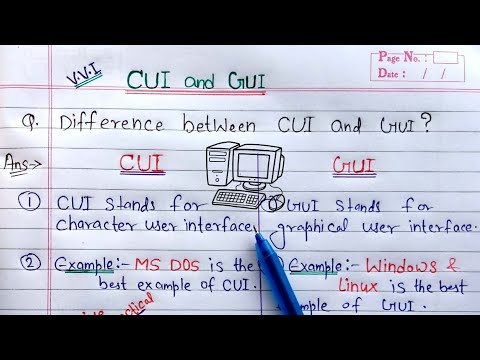 Page No. :
Date : / /
V.V.I
CUI and GUI
Q. Difference between CUI and GUI?
Ans:->
CUI
GUI
① CUI stands for
character user interface
GUI stands for
graphical user interface.
② Example:- MS DOS is the
best example of CUI.
Example:- Windows &
Linux is the best
example of GUI.